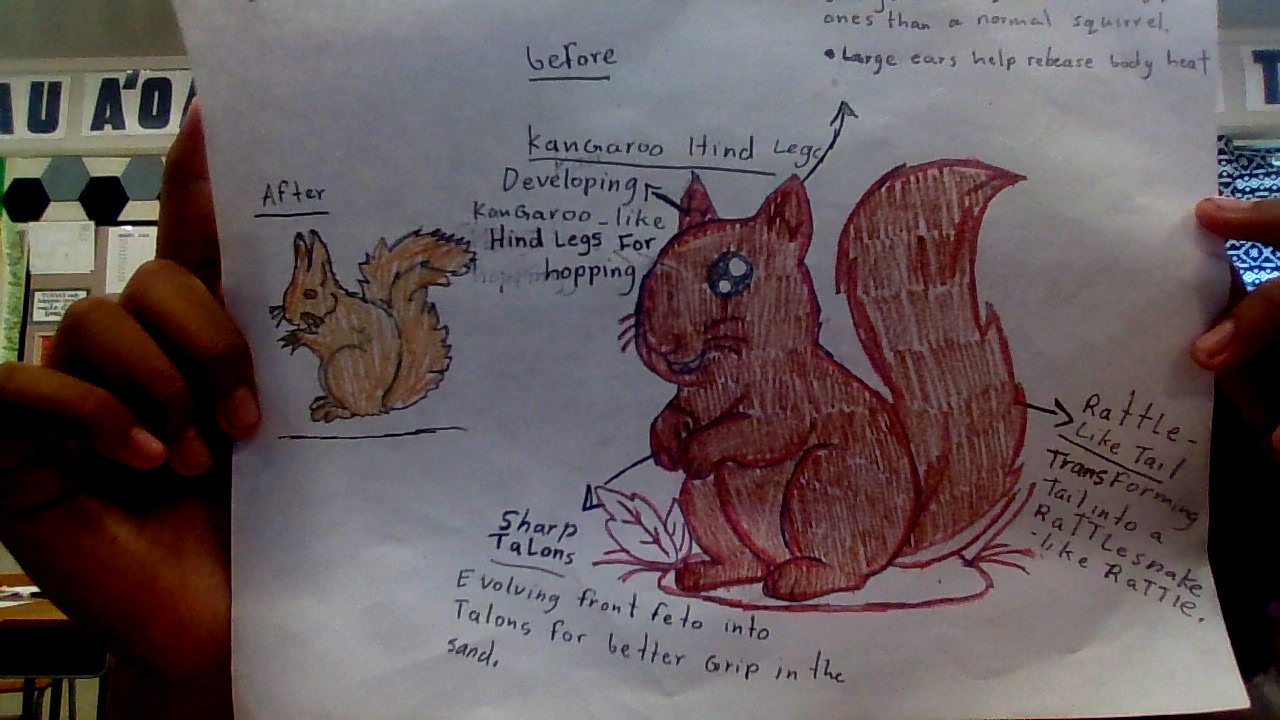 ones than a normal squirrel.
• Large ears help rebease body heat
before
Kangaroo Hind Legs
Developing
Kangaroo-like
Hind Legs For
hopping
After
Rattle-
Like Tail
Transforming
Tail into a
Rattlesnake
-like Rattle.
Sharp
Talons
Evolving front feto into
Talons for better Grip in the
sand.
AU A'O